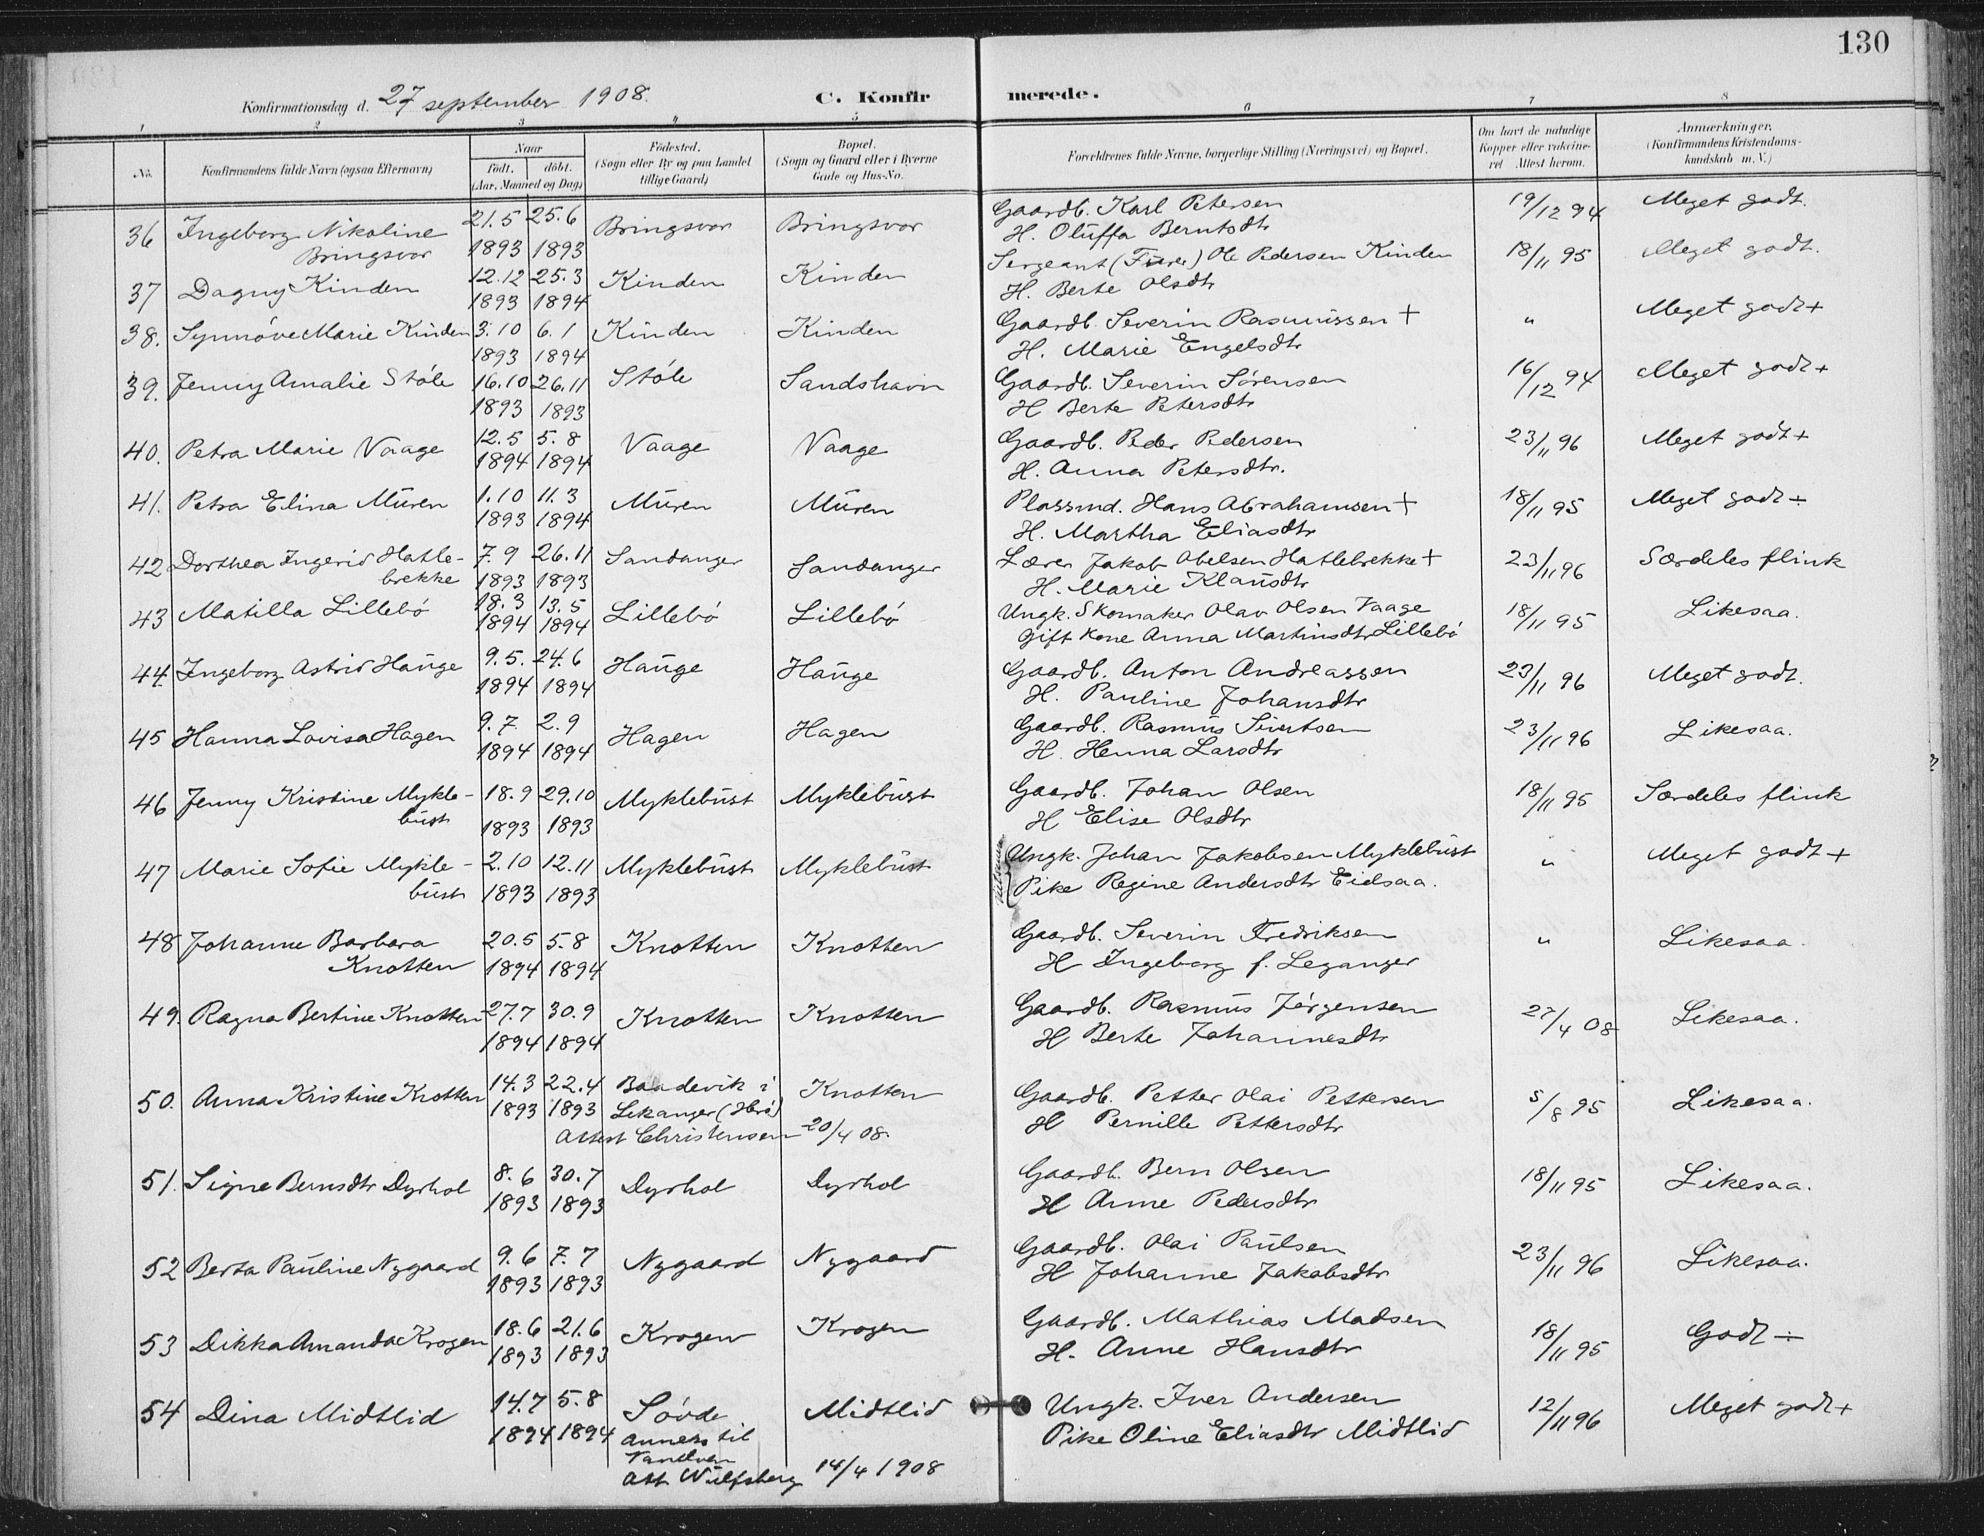 130
Konfirmationsdag d. 27 september 1908. C. Konfirmerede.
1 2 3 4 5 6 7 8
No. Konfirmandens fulde Navn (ogsaa Efternavn) Naar födt. döbt. (Aar, Maaned og Dag) Födested. (Sogn eller By og paa Landet tillige Gaard) Bopæl. (Sogn og Gaard eller i Byerne Gade og Hus-No. Forældrenes fulde Navne, borgerlige Stilling (Næringsvei) og Bopæl. Om havt de naturlige Kopper eller vakcineret Attest herom. Anmærkninger. (Konfirmandens Kristendomskundskab m. V.)
36 Ingeborg Nikoline 21.5 25.6 Bringsvor Bringsvor Gaardb. Karl Petersen 19/12 94 Meget godt.
Bringsvor 1893 1893 H. Oluffa Berntsdtr
37 Dagny Kinden 12.12 25.3 Kinden Kinden Sergeant (Furer) Ole Pedersen Kinden 18/11 95 Meget godt.
1893 1894 H. Berte Olsdtr
38. Synnøve Marie Kinden 3.10 6.1 Kinden Kinden Gaardb. Severin Rasmussen + " Meget godt +
1893 1894 H. Marie Engelsdtr
39. Jenny Amalie Støle 16.10 26.11 Støle Sandshavn Gaardb. Severin Sørensen 16/12 94 Meget godt +
1893 1893 H Berte Petersdtr
40. Petra Marie Vaage 12.5 5.8 Vaage Vaage Gaardb. Peder Pedersen 23/11 96 Meget godt +
1894 1894 H. Anna Petersdtr.
41. Petra Elina Muren 1.10 11.3 Muren Muren Plassmd. Hans Abrahamsen + 18/11 95 Meget godt ÷
1893 1894 H. Martha Eliasdtr
42 Dorthea Ingerid Hatle- 7.9 26.11 Sandanger Sandanger Lærer Jakob Abelsen Hatlebrekke + 23/11 96 Særdeles flink
brekke 1893 1893 H. Marie Klausdtr
43 Matilla Lillebø 18.3 13.5 Lillebø Lillebø Ungk. Skomaker Olav Olsen Vaage 18/11 95 Likesaa.
1894 1894 gift Kone Anna Martinsdtr Lillebø
44. Ingeborg Astrid Hauge 9.5. 24.6 Hauge Hauge Gaardb. Anton Andreassen 23/11 96 Meget godt.
1894 1894 H. Pauline Johansdtr
45 Hanna Lovisa Hagen 9.7. 2.9 Hagen Hagen Gaardb. Rasmus Sivertsen 23/11 96 Likesaa.
1894 1894 H. Henna Larsdtr
46 Jenny Kristine Mykle- 18.9 29.10 Myklebust Myklebust Gaardb. Johan Olsen 18/11 95 Særdeles flink
bust 1893 1893 H Elise Olsdtr
47 Marie Sofie Mykle- 2.10 12.11 Myklebust Myklebust Ungk. Johan Jakobsen Myklebust " Meget godt +
bust 1893 1893 Pike Regine Andersdtr Eidsaa.
48 Johanne Barbara 20.5 5.8 Knotten Knotten Gaardb. Severin Fredriksen " Likesaa.
Knotten 1894 1894 H Ingeborg f. Leganger
49. Ragna Bertine Knotten 27.7 30.9 Knotten Knotten Gaardb. Rasmus Jørgensen 27/4 08 Likesaa.
1894 1894 H Berte Johannesdtr
50. Anna Kristine Knotten 14.3 22.4 Baadevik i Knotten Gaardb. Petter Olai Pettersen 5/8 95 Likesaa.
1893 1893 Lekanger (Herö) H Pernille Pettersdtr
Attest Christensen 20/4 08.
51. Signe Bernsdtr Dyrhol 8.6 30.7 Dyrhol Dyrhol Gaardb. Bern Olsen 18/11 95 Likesaa.
1893 1893 H Anne Pedersdtr
52 Berta Pauline Nygaard 9.6 7.7 Nygaard Nygaard Gaardb. Olai Paulsen 23/11 96 Likesaa.
1893 1893 H Johanne Jakobsdtr
53 Dikka Amanda Krogen 18.6 21.6 Krogen Krogen Gaardb. Mathias Madsen 18/11 95 Godt ÷
1893 1893 H. Anne Hansdtr
54 Dina Midtlid 14.7 5.8 Søvde Midtlid Ungk. Iver Andersen 12/11 96 Meget godt +
1894 1894 annexs til Pike Oline Eliasdtr Midtlid
Vanelven
Att Wulfsberg 14/4 1908